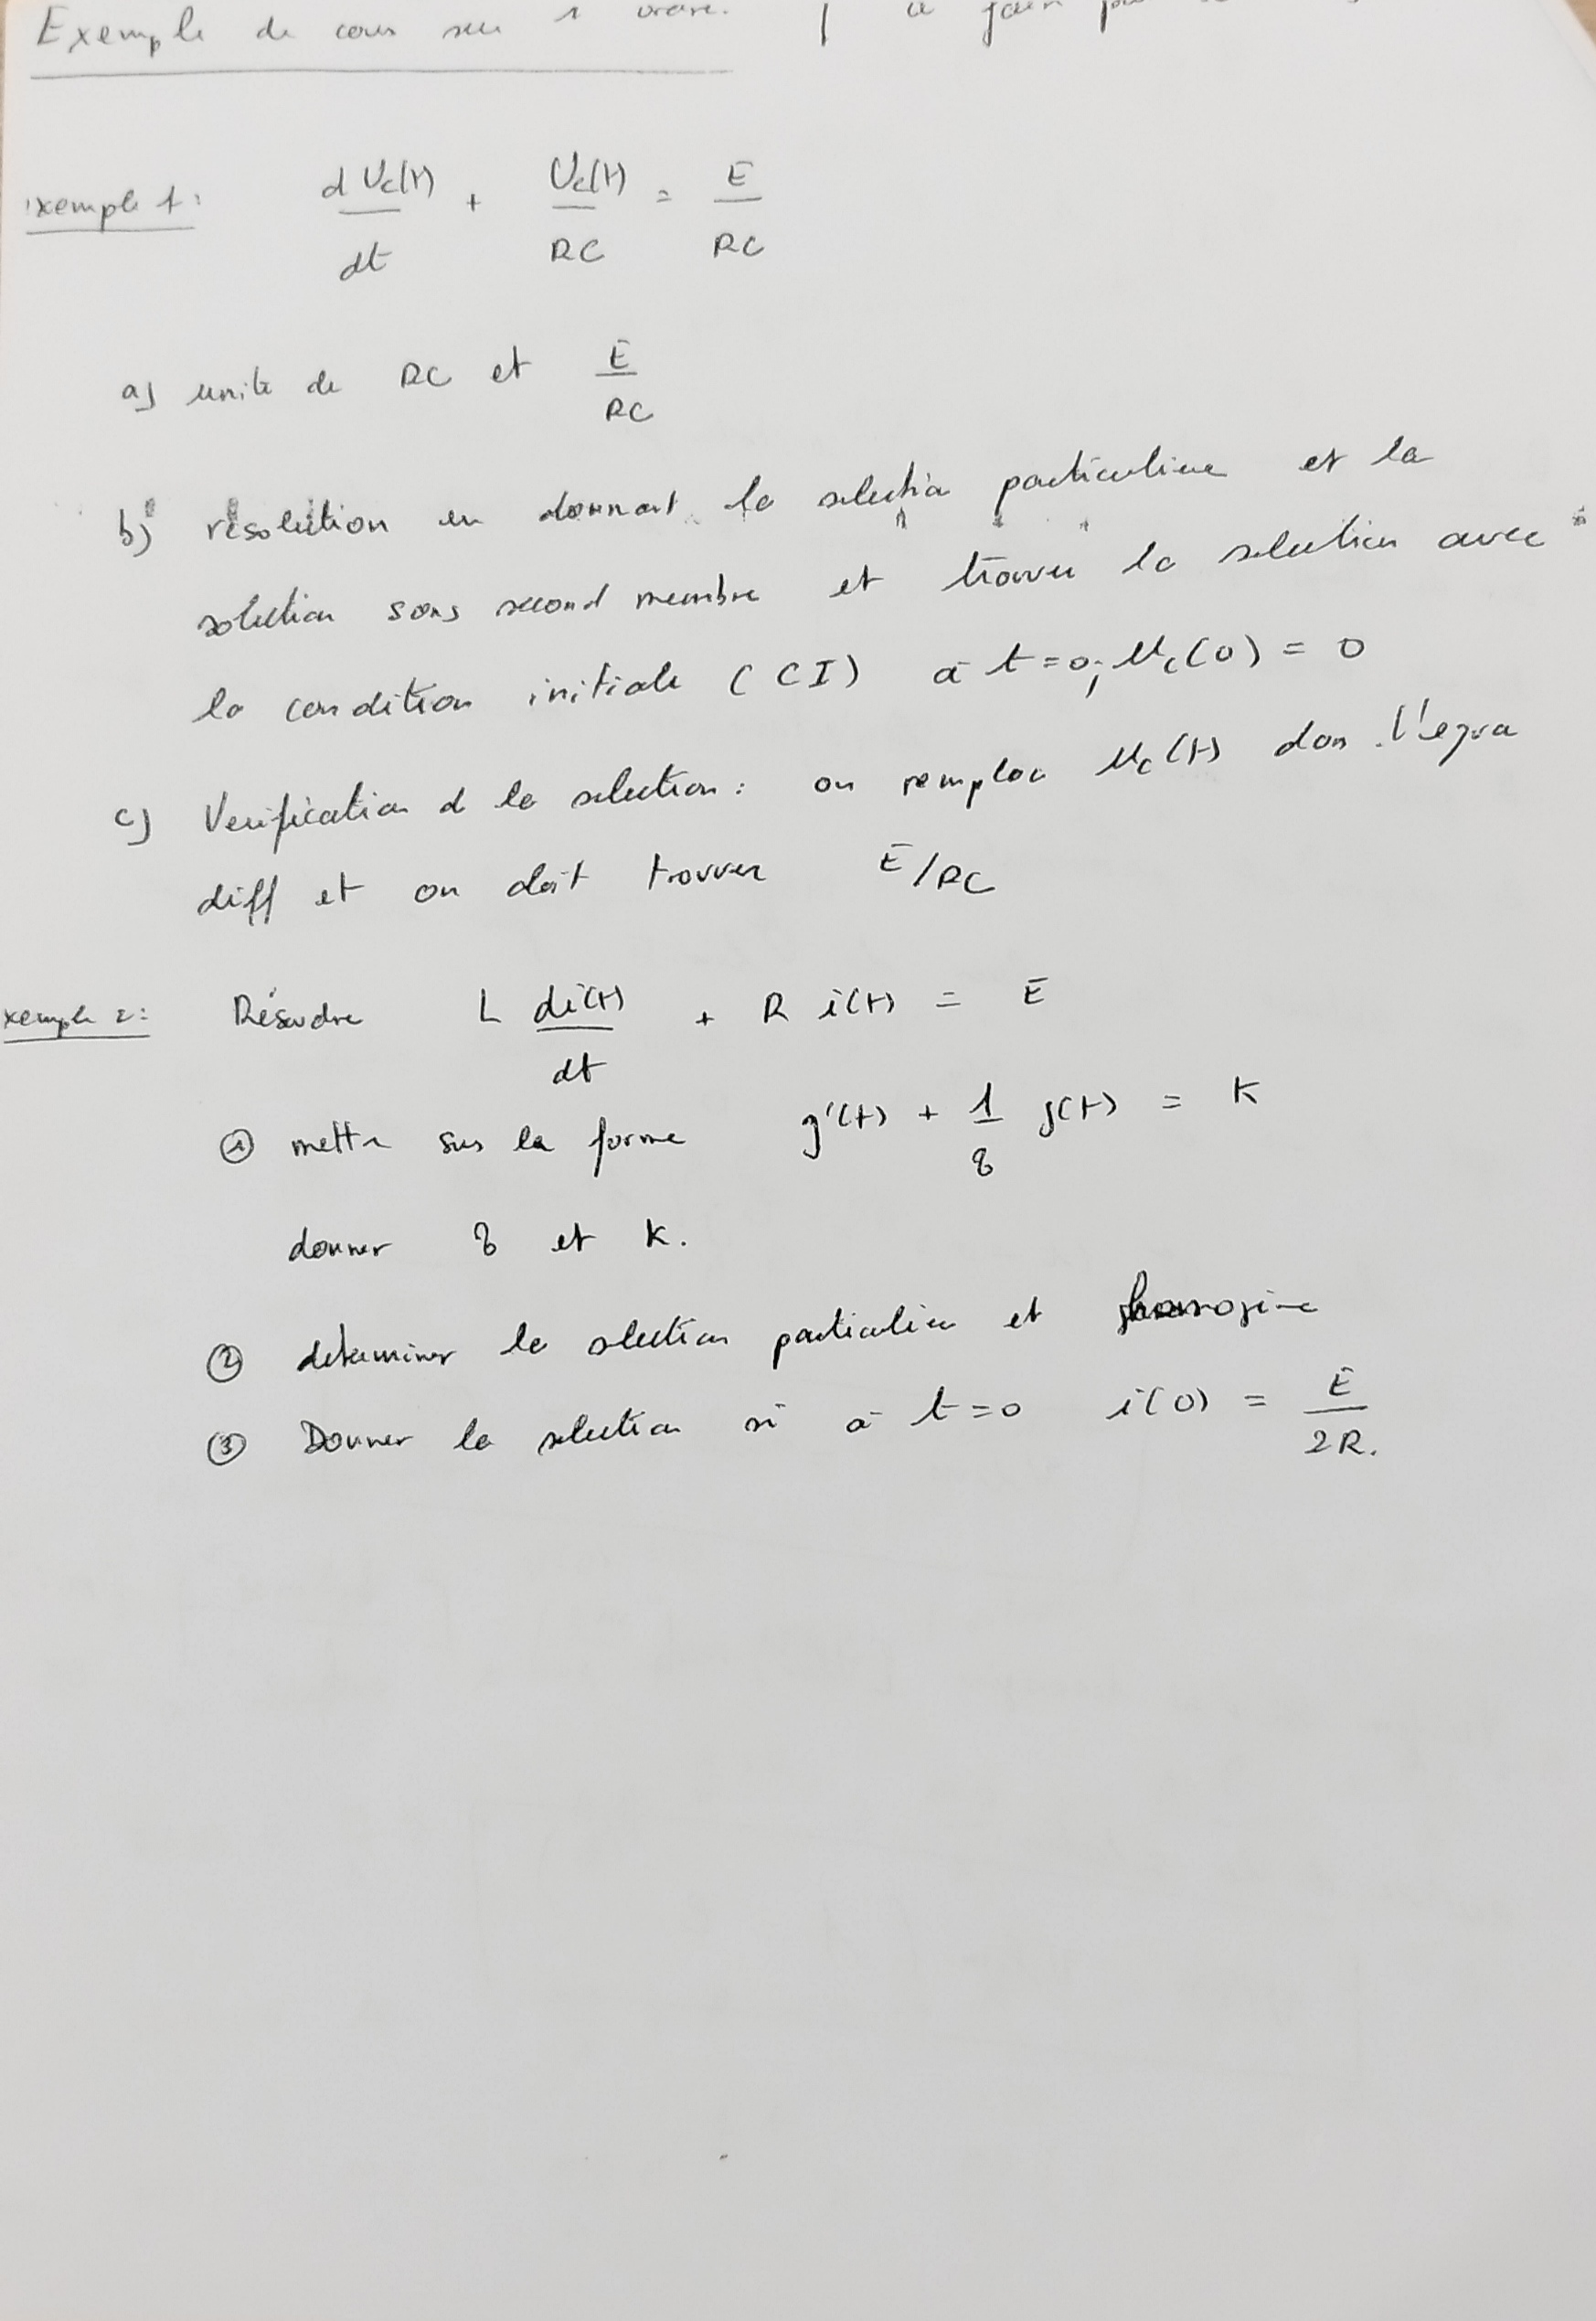 Exemple de cours sur 1 ordre.
Exemple 1: d Uc(t)/dt + Uc(t)/RC = E/RC
a) unité de RC et E/RC
b) résolution en donnant la solution particulière et la
solution sans second membre et trouver la solution avec
la condition initiale (CI) à t=0; Uc(0) = 0
c) Verification d la solution: on remplac Uc(t) dan l'equa
diff et on doit trouver E/RC
xemple 2: Résoudre L di(t)/dt + R i(t) = E
① mettre sus la forme g'(t) + 1/τ g(t) = K
donner τ et K.
② determiner la solution particuliere et homogène
③ Donner la solution si à t=0 i(0) = E/2R.